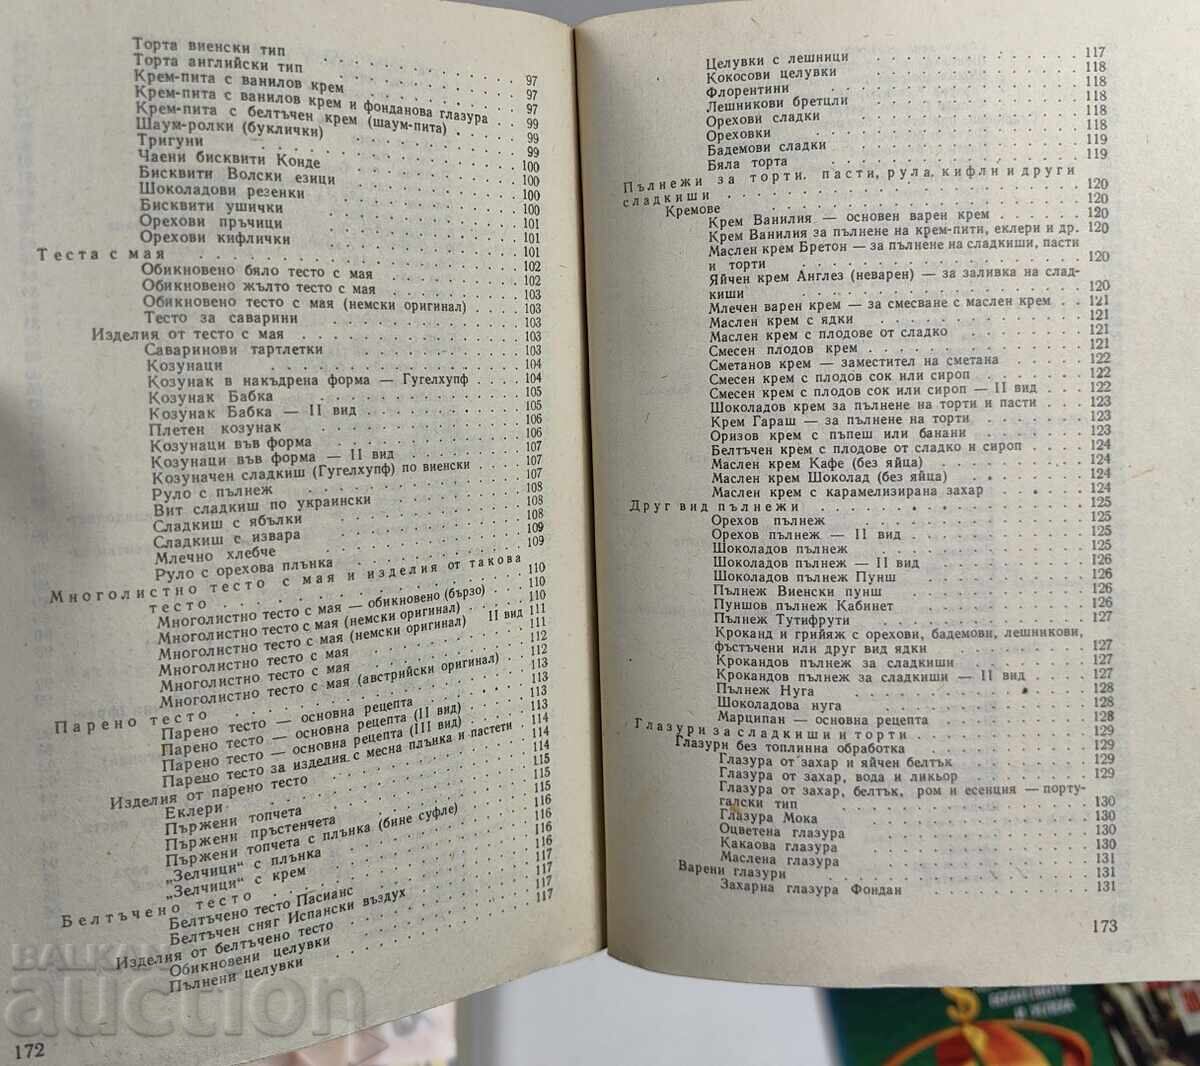 Торта виенски тип
Торта английски тип 97
Крем-пита с ванилов крем 97
Крем-пита с ванилов крем и фонданова глазура 97
Крем-пита с белтъчен крем (шаум-пита) 99
Шаум-ролки (буклички) 99
Тригуни 99
Чаени бисквити Конде 100
Бисквити Волски езици 100
Шоколадови резенки 100
Бисквити ушички 100
Орехови пръчици 101
Орехови кифлички 101
Теста с мая 101
Обикновено бяло тесто с мая 102
Обикновено жълто тесто с мая 102
Обикновено тесто с мая (немски оригинал) 103
Тесто за саварини 103
Изделия от тесто с мая 103
Саваринови тартлетки 103
Козунаци 104
Козунак в накъдрена форма — Гугелхупф 104
Козунак Бабка 105
Козунак Бабка — II вид 105
Плетен козунак 106
Козунаци във форма 106
Козунаци във форма — II вид 107
Козуначен сладкиш (Гугелхупф) по виенски 107
Руло с пълнеж 108
Вит сладкиш по украински 108
Сладкиш с ябълки 108
Сладкиш с извара 109
Млечно хлебче 109
Руло с орехова плънка
Многолистно тесто с мая и изделия от такова
тесто 110
Многолистно тесто с мая — обикновено (бързо) 110
Многолистно тесто с мая (немски оригинал) 110
Многолистно тесто с мая (немски оригинал) II вид 111
Многолистно тесто с мая 111
Многолистно тесто с мая 112
Многолистно тесто с мая (австрийски оригинал) 112
Парено тесто 113
Парено тесто — основна рецепта 113
Парено тесто — основна рецепта (II вид) 113
Парено тесто — основна рецепта (III вид) 114
Парено тесто за изделия с месна плънка и пастети 114
Изделия от парено тесто 114
Еклери 115
Пържени топчета 115
Пържени пръстенчета 116
Пържени топчета с плънка (бине суфле) 116
„Зелчици“ с плънка 116
„Зелчици“ с крем 116
Белтъчено тесто 117
Белтъчено тесто Пасианс 117
Белтъчен сняг Испански въздух 117
Изделия от белтъчено тесто 117
Обикновени целувки
Пълнени целувки
172
Целувки с лешници 117
Кокосови целувки 118
Флорентини 118
Лешникови бретцли 118
Орехови сладки 118
Ореховки 118
Бадемови сладки 119
Бяла торта 119
Пълнежи за торти, пасти, рула, кифли и други
сладкиши 120
Кремове 120
Крем Ванилия — основен варен крем 120
Крем Ванилия за пълнене на крем-пити, еклери и др. 120
Маслен крем Бретон — за пълнене на сладкиши, пасти
и торти 120
Яйчен крем Англез (неварен) — за заливка на слад-
киши 120
Млечен варен крем — за смесване с маслен крем 121
Маслен крем с ядки 121
Маслен крем с плодове от сладко 121
Смесен плодов крем 121
Сметанов крем — заместител на сметана 122
Смесен крем с плодов сок или сироп 122
Смесен крем с плодов сок или сироп — II вид 122
Шоколадов крем за пълнене на торти и пасти 123
Крем Гараш — за пълнене на торти 123
Оризов крем с пъпеш или банани 123
Белтъчен крем с плодове от сладко и сироп 124
Маслен крем Кафе (без яйца) 124
Маслен крем Шоколад (без яйца) 124
Маслен крем с карамелизирана захар 124
Друг вид пълнежи 125
Орехов пълнеж 125
Орехов пълнеж — II вид 125
Шоколадов пълнеж 125
Шоколадов пълнеж — II вид 126
Шоколадов пълнеж Пунш 126
Пълнеж Виенски пунш 126
Пуншов пълнеж Кабинет 126
Пълнеж Тутифрути 127
Кроканд и грийяж с орехови, бадемови, лешникови,
фъстъчени или друг вид ядки 127
Крокандов пълнеж за сладкиши 127
Крокандов пълнеж за сладкиши — II вид 127
Пълнеж Нуга 128
Шоколадова нуга 128
Марципан — основна рецепта 128
Глазури за сладкиши и торти 129
Глазури без топлинна обработка 129
Глазура от захар и яйчен белтък 129
Глазура от захар, вода и ликьор 129
Глазура от захар, белтък, ром и есенция — порту-
галски тип 130
Глазура Мока 130
Оцветена глазура 130
Какаова глазура 130
Маслена глазура 131
Варени глазури 131
Захарна глазура Фондан 131
173
BALKAN
auction